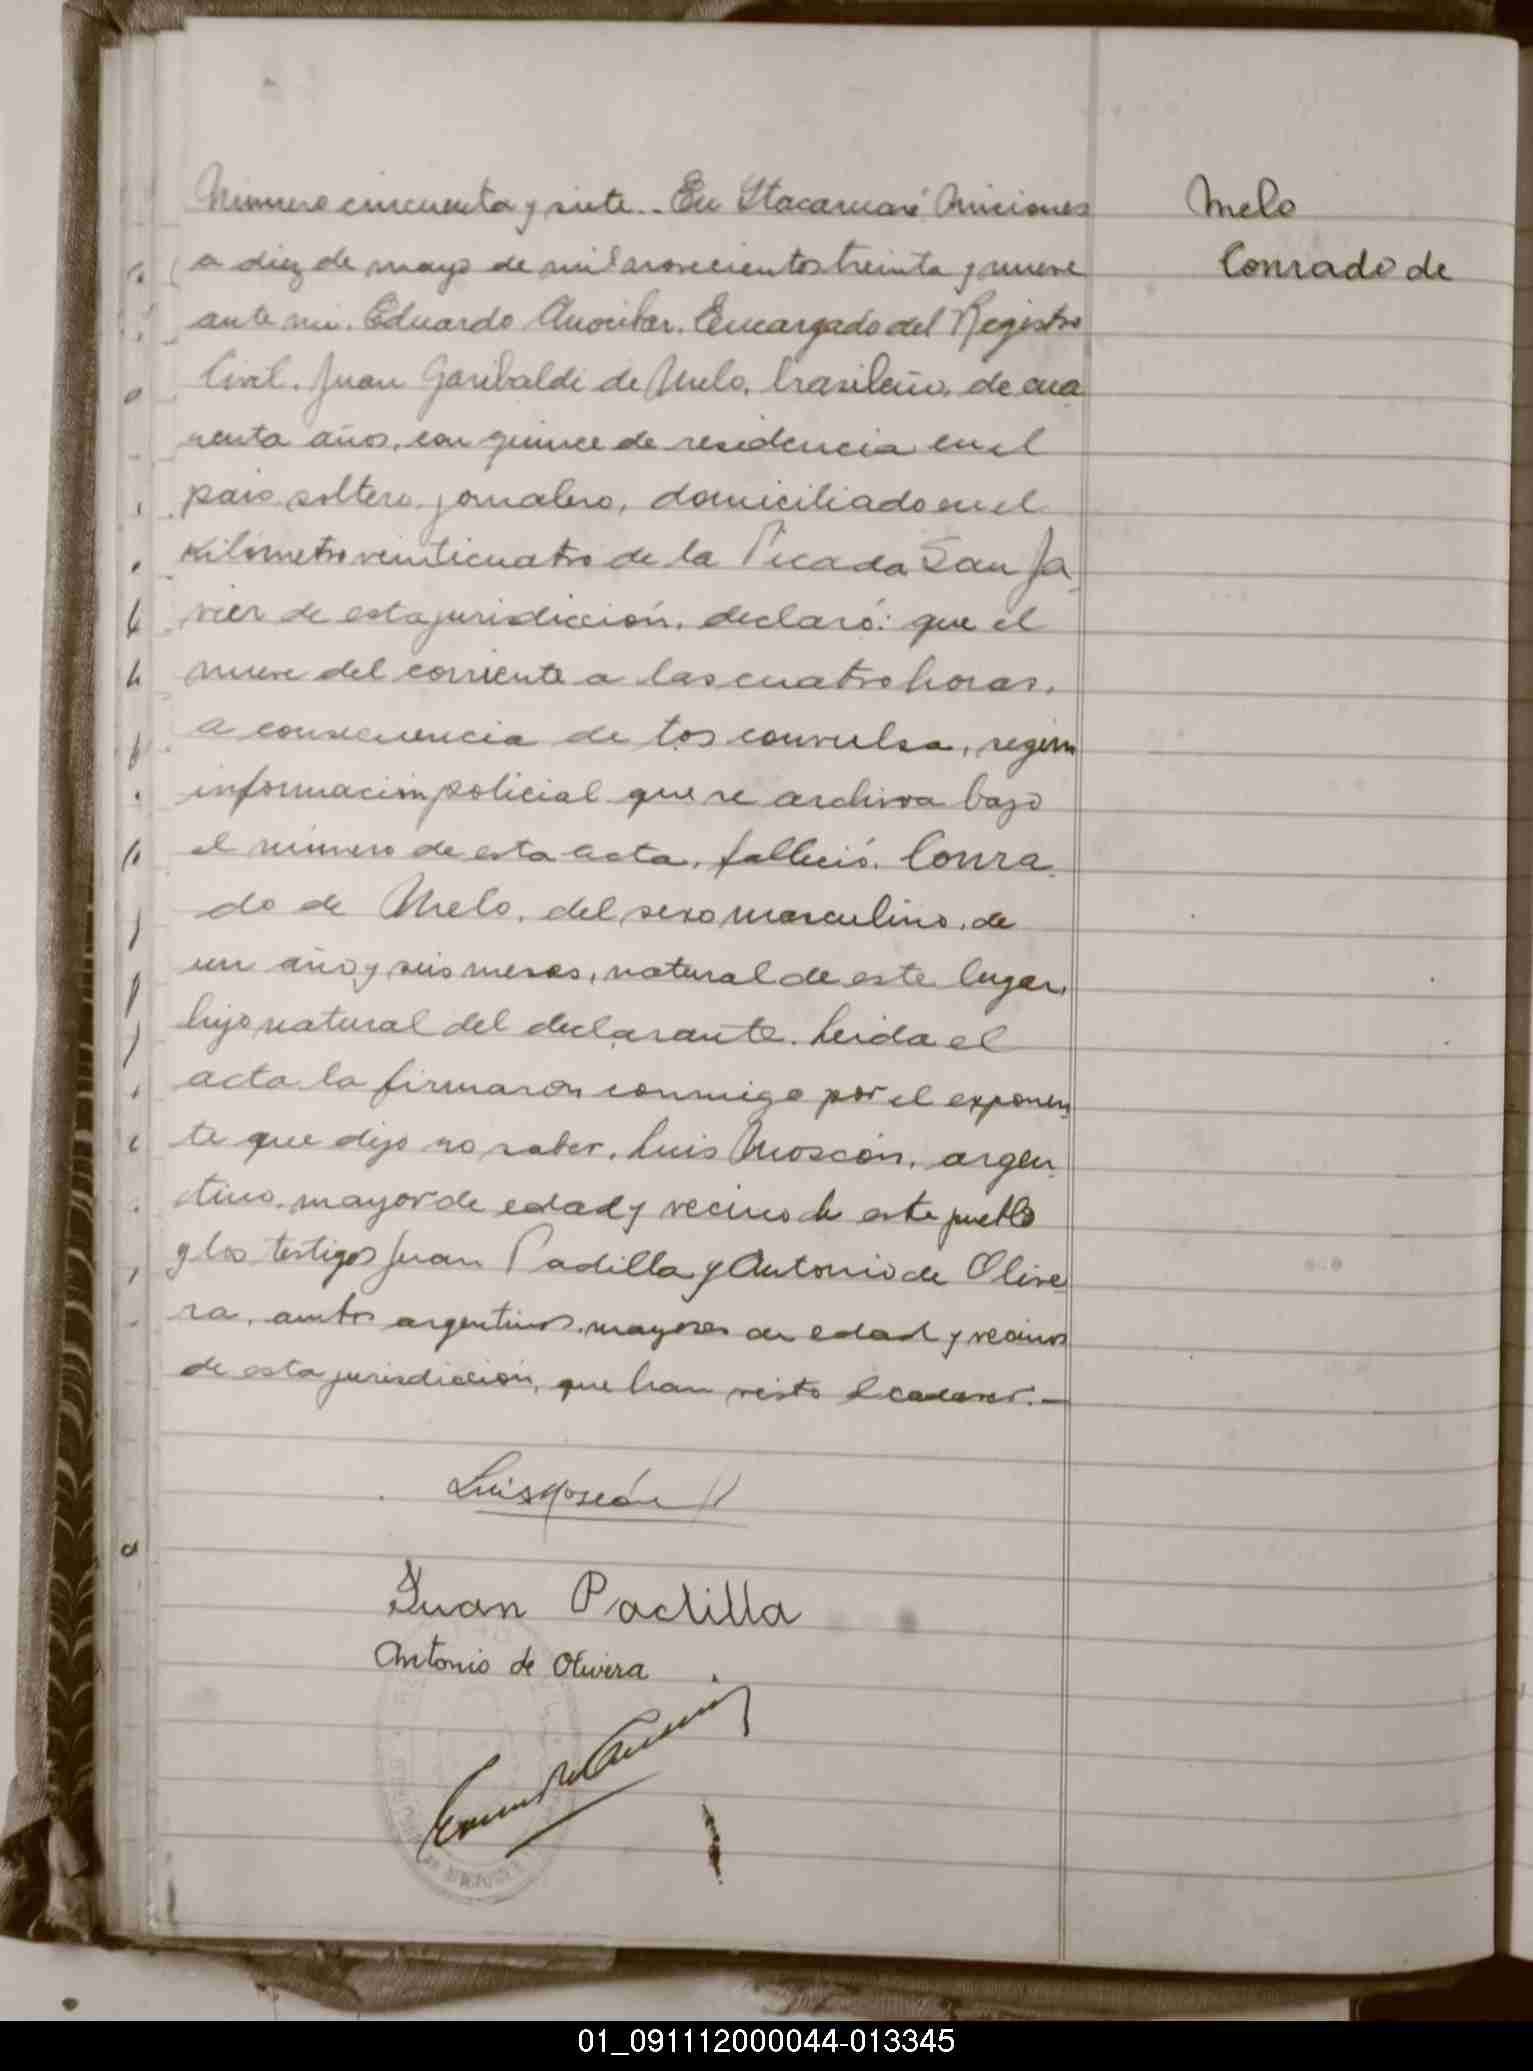 Número cincuenta y siete.. En Itacaruaré Misiones
a diez de mayo de mil novecientos treinta y nueve
ante mi. Eduardo Encargado del Registro
Civil. Juan Garibaldi de Melo, brasileño, de cua
renta años, con quince de residencia en el
pais soltero, jornalero, domiciliado en el
kilómetro veinticuatro de la Picada San Ja
vier de esta jurisdicción, declaró: que el
nueve del corriente a las cuatro horas,
a consecuencia de tos convulsa, según
información policial que se archiva bajo
el número de esta acta, falleció. Conra
do de Melo, del sexo masculino, de
un año y seis meses, natural de este lugar,
hijo natural del declarante. Leida el
acta la firmaron conmigo por el exponen
te que dijo no saber, Luis Moscón, argen
tino, mayor de edad y vecino de este pueblo
y los testigos Juan Padilla y Antonio de Olive
ra, ambos argentinos, mayores de edad y vecinos
de esta jurisdicción, que han visto el cadaver.-
Melo
Conrado de
Luis Moscón
Juan Padilla
Antonio de Olivera
01_091112000044-013345